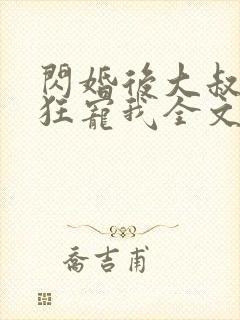 閃婚後大叔
狂寵我全文
喬吉甫